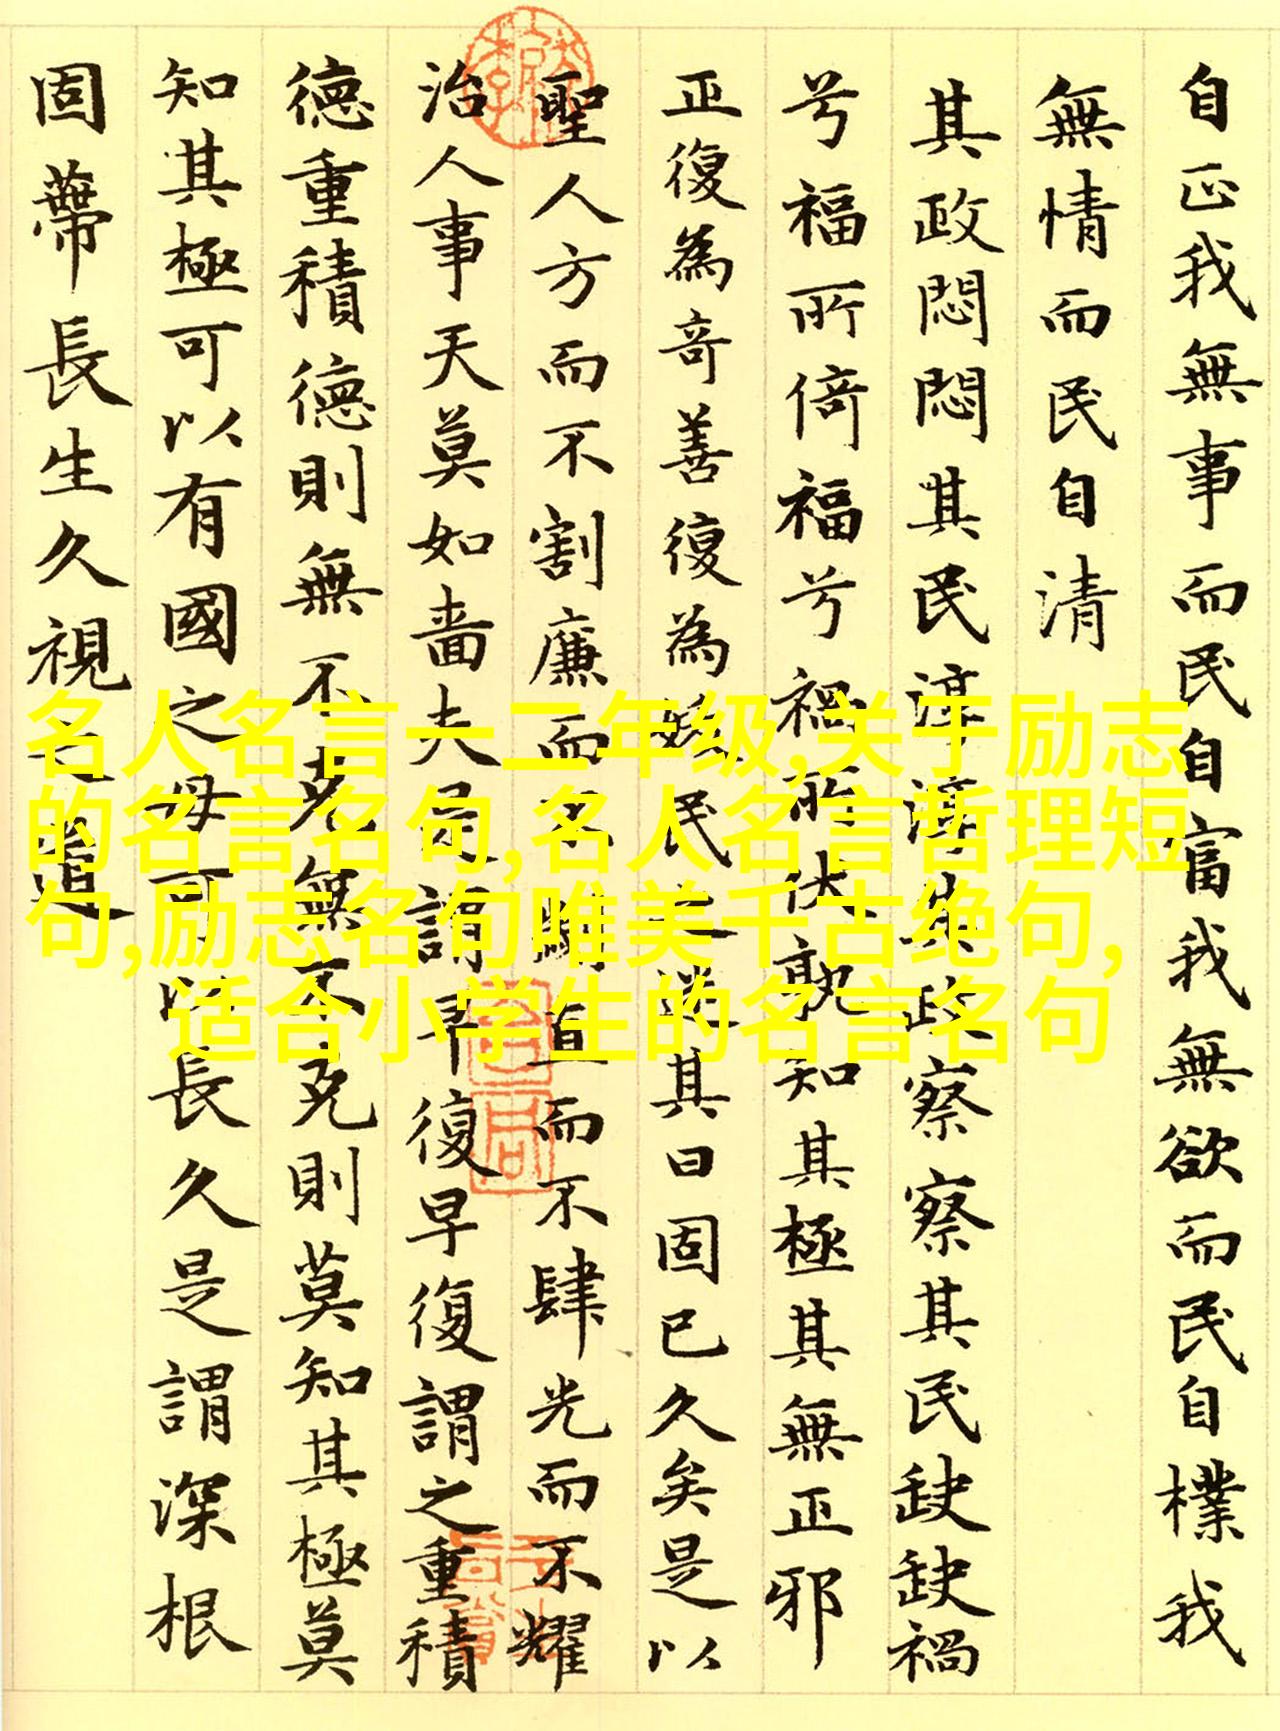 自正我無事而民自富我無欲而民自樸我
無情而民自清
其政悶悶其民淳淳其政察察其民缺缺禍
兮福所倚福兮禍所伏孰知其極其無正邪
正復為奇善復為妖民之迷其日固已久矣是以
聖人方而不割廉而不劌直而不肆光而不耀
治人事天莫如嗇夫是謂早復早復謂之重積
德重積德則無不克無不克則莫知其極莫
知其極可以有國之母可以長久是謂深根
固蔕長生久視之道
名人名言一二年级,关于励志
的名言名句,名人名言哲理短
句,励志名句唯美千古绝句,
适合小学生的名言名句